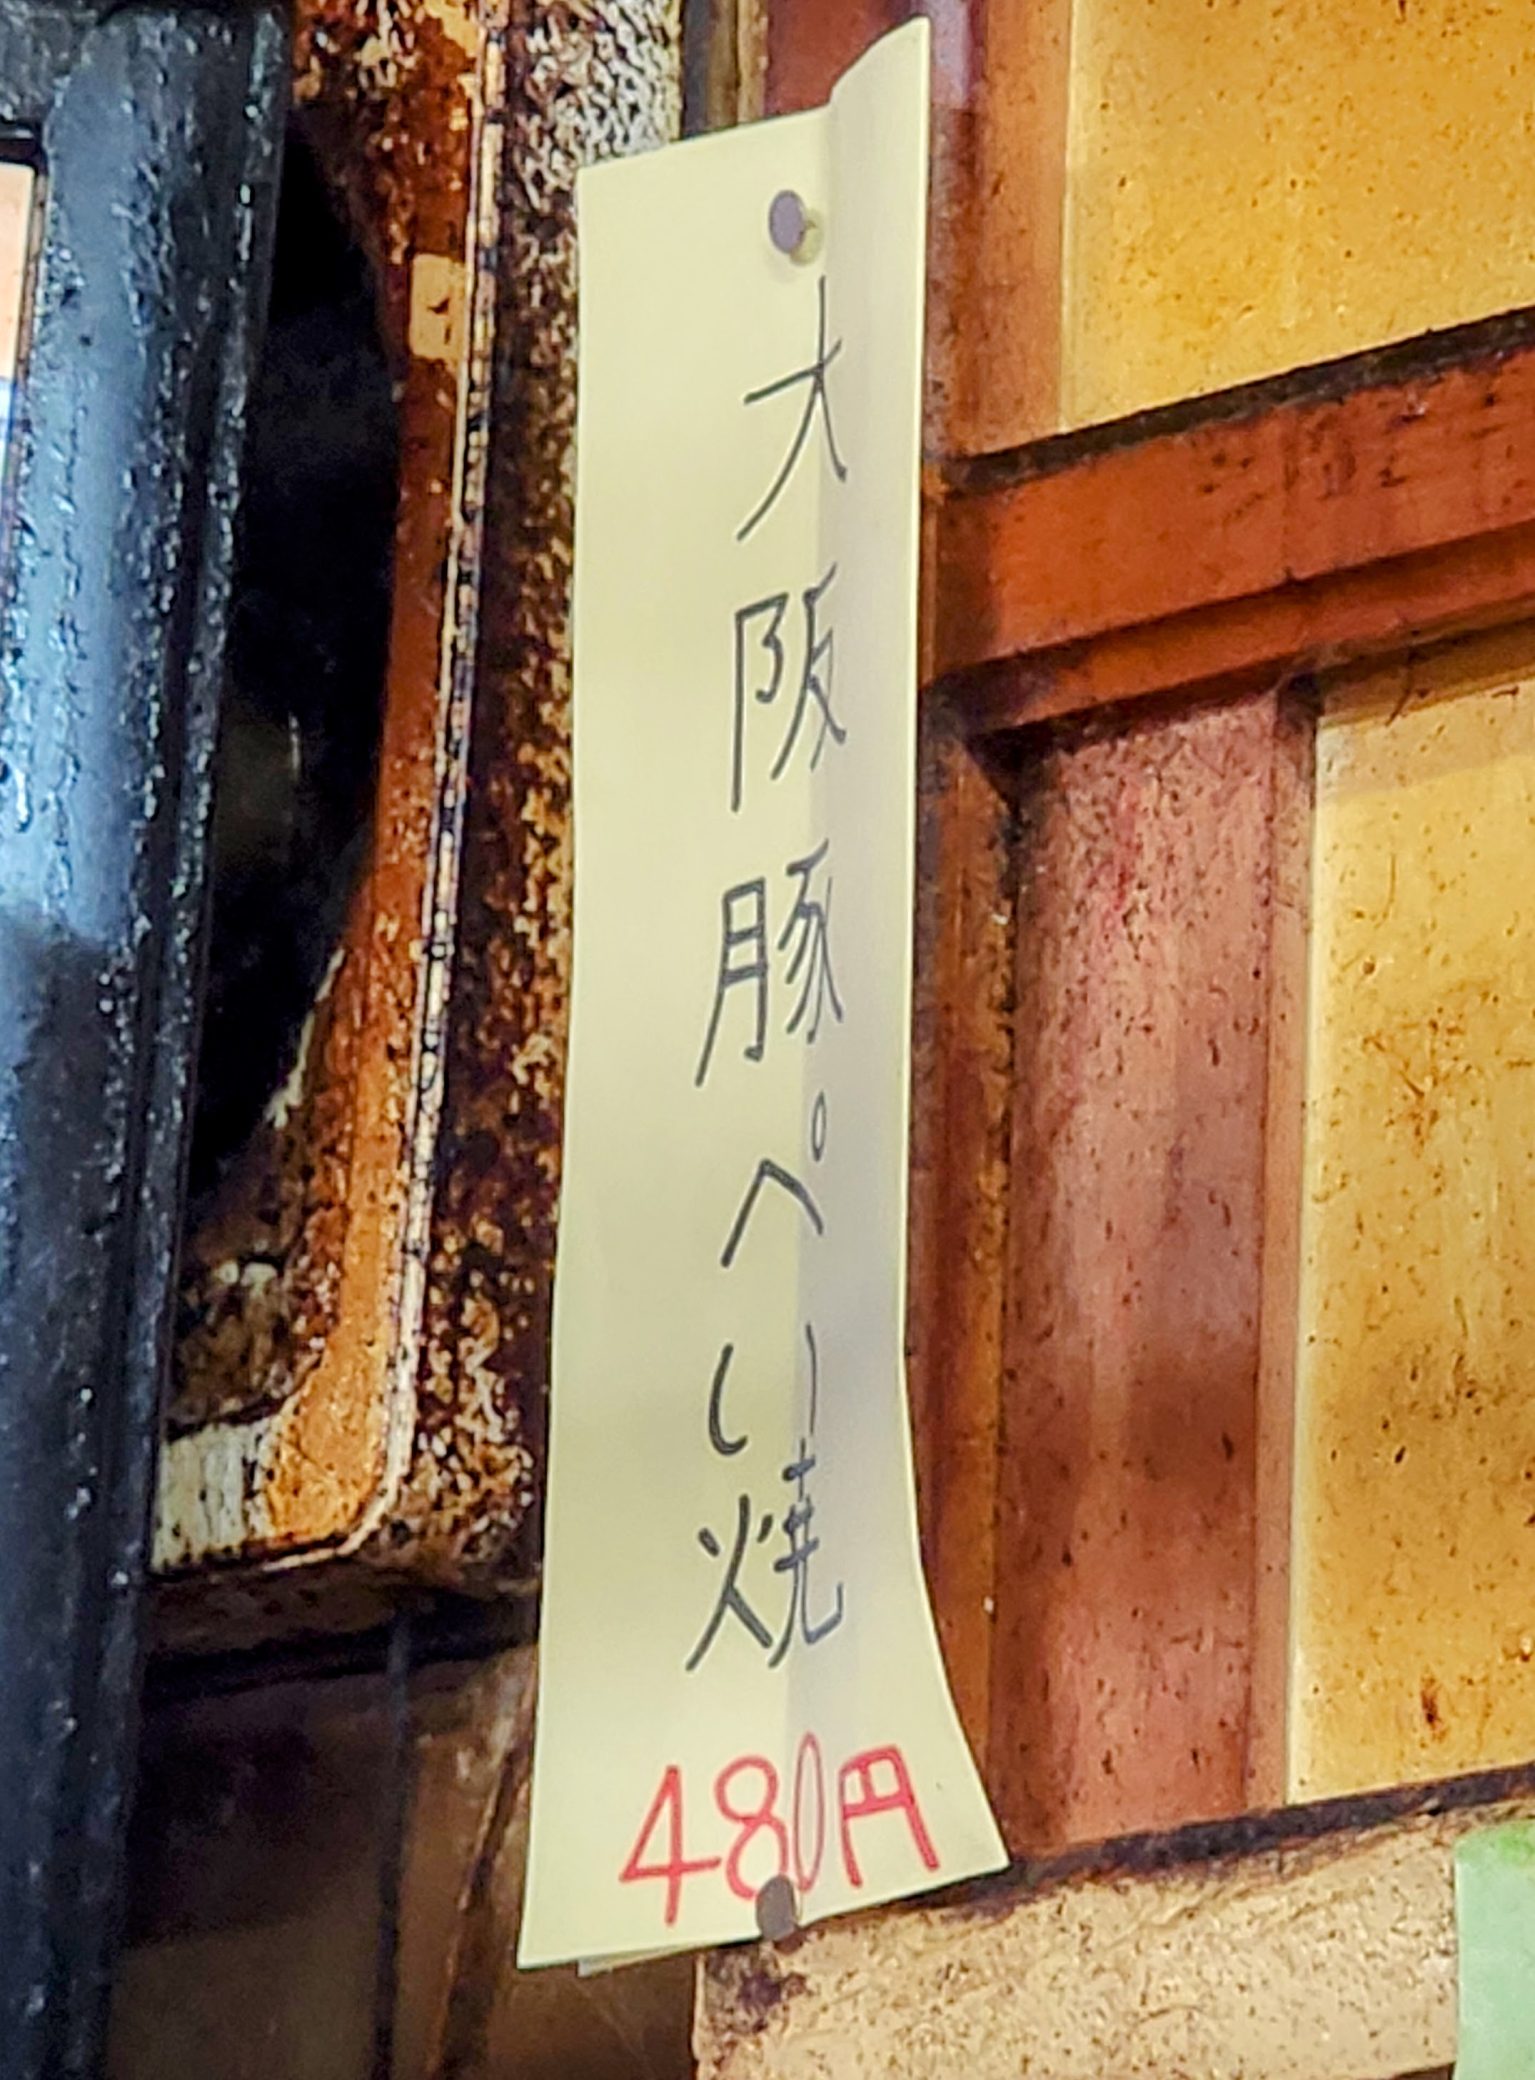 大阪豚ぺい焼
480円